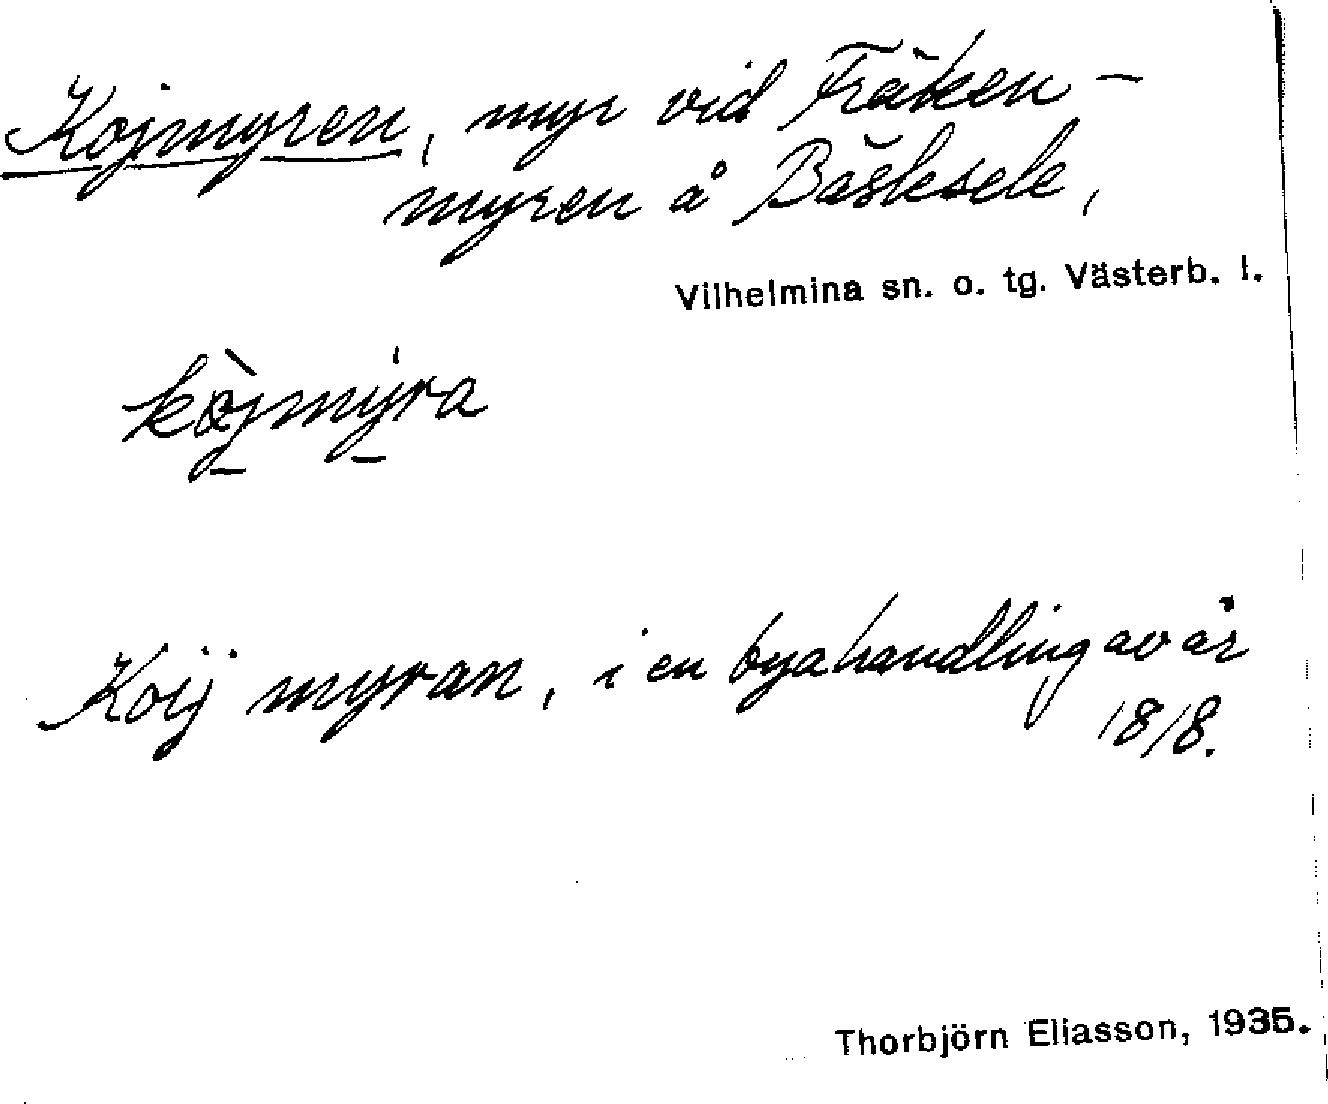 Kojmyren, myr vid Fräken-
myren å Bäsksele,
Vilhelmina sn. o. tg. Västerb. l.
kòjmyra
Koij myran, i en byahandling av år
1818.
Thorbjörn Eliasson, 1935.